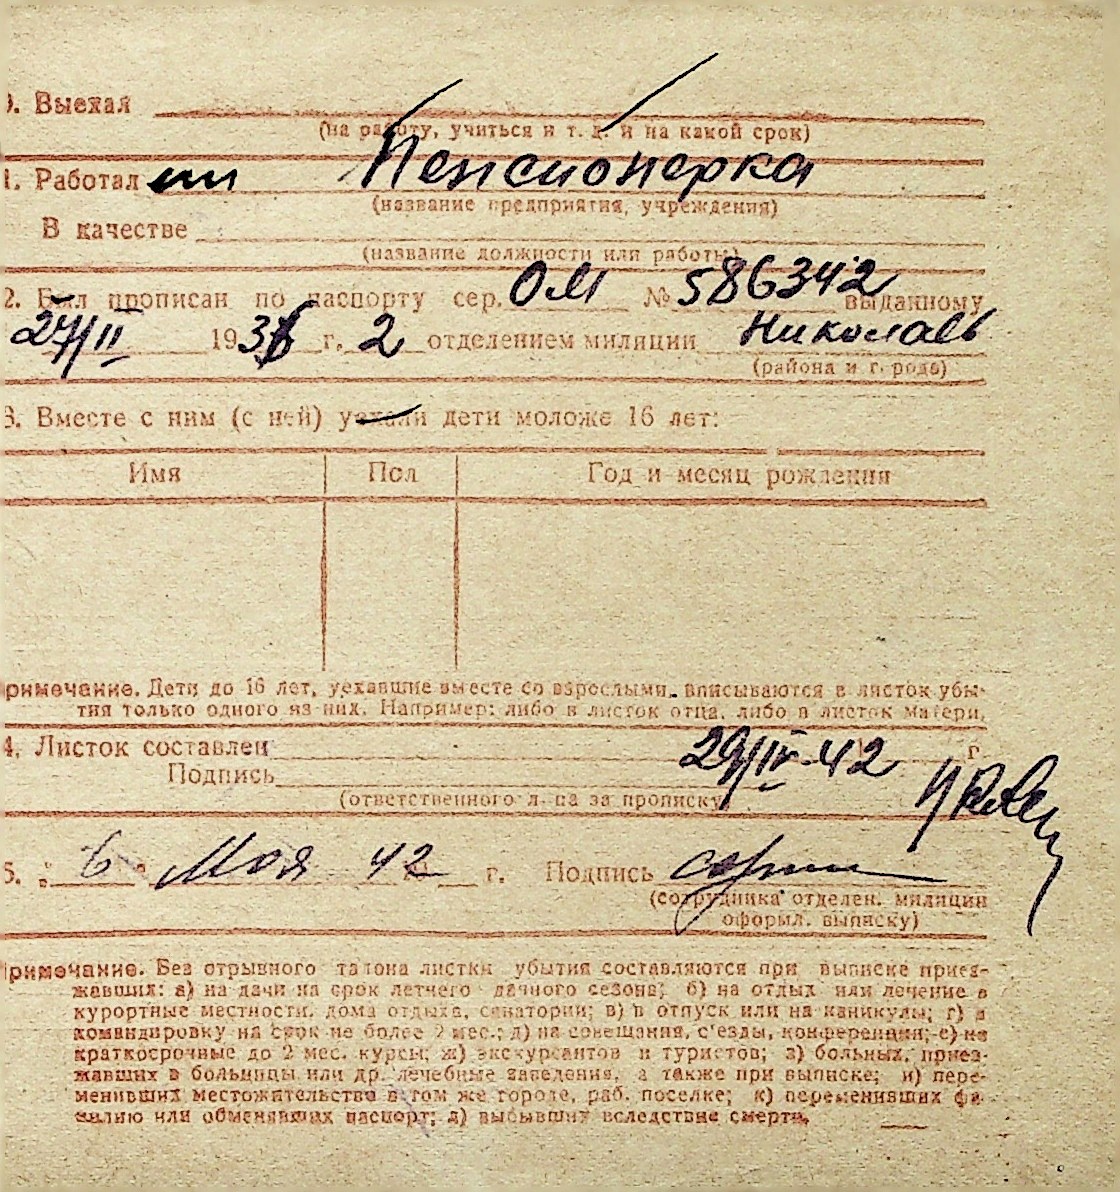 0. Выехал
(на работу, учиться и т. д. и на какой срок)
1. Работал Пенсионерка
(название предприятия, учреждения)
В качестве
(название должности или работы)
2. Был прописан по паспорту сер. ОМ № 586342 выданному
27/II 1936 г. 2 отделением милиции Николаев
(района и города)
3. Вместе с ним (с ней) уехали дети моложе 16 лет:
Имя Пол Год и месяц рождения
римечание. Дети до 16 лет, уехавшие вместе со взрослыми, вписываются в листок убы-
тия только одного из них. Например: либо в листок отца, либо в листок матери.
4. Листок составлен 29/IV-42 г.
Подпись
(ответственного л-ца за прописку)
5. " 6 " Мая 42 г. Подпись
(сотрудника отделен. милиции
оформл. выписку)
римечание. Без отрывного талона листки убытия составляются при выписке приез-
жавших: а) на дачи на срок летнего дачного сезона; б) на отдых или лечение в
курортные местности, дома отдыха, санатории; в) в отпуск или на каникулы; г) в
командировку на срок не более 2 мес.; д) на совещания, с'езды, конференции; е) на
краткосрочные до 2 мес. курсы; ж) экскурсантов и туристов; з) больных, приез-
жавших в больницы или др. лечебные заведения, а также при выписке; и) пере-
менивших местожительство в том же городе, раб. поселке; к) переменивших фа-
милию или обменявших паспорт; л) выбывших вследствие смерти.